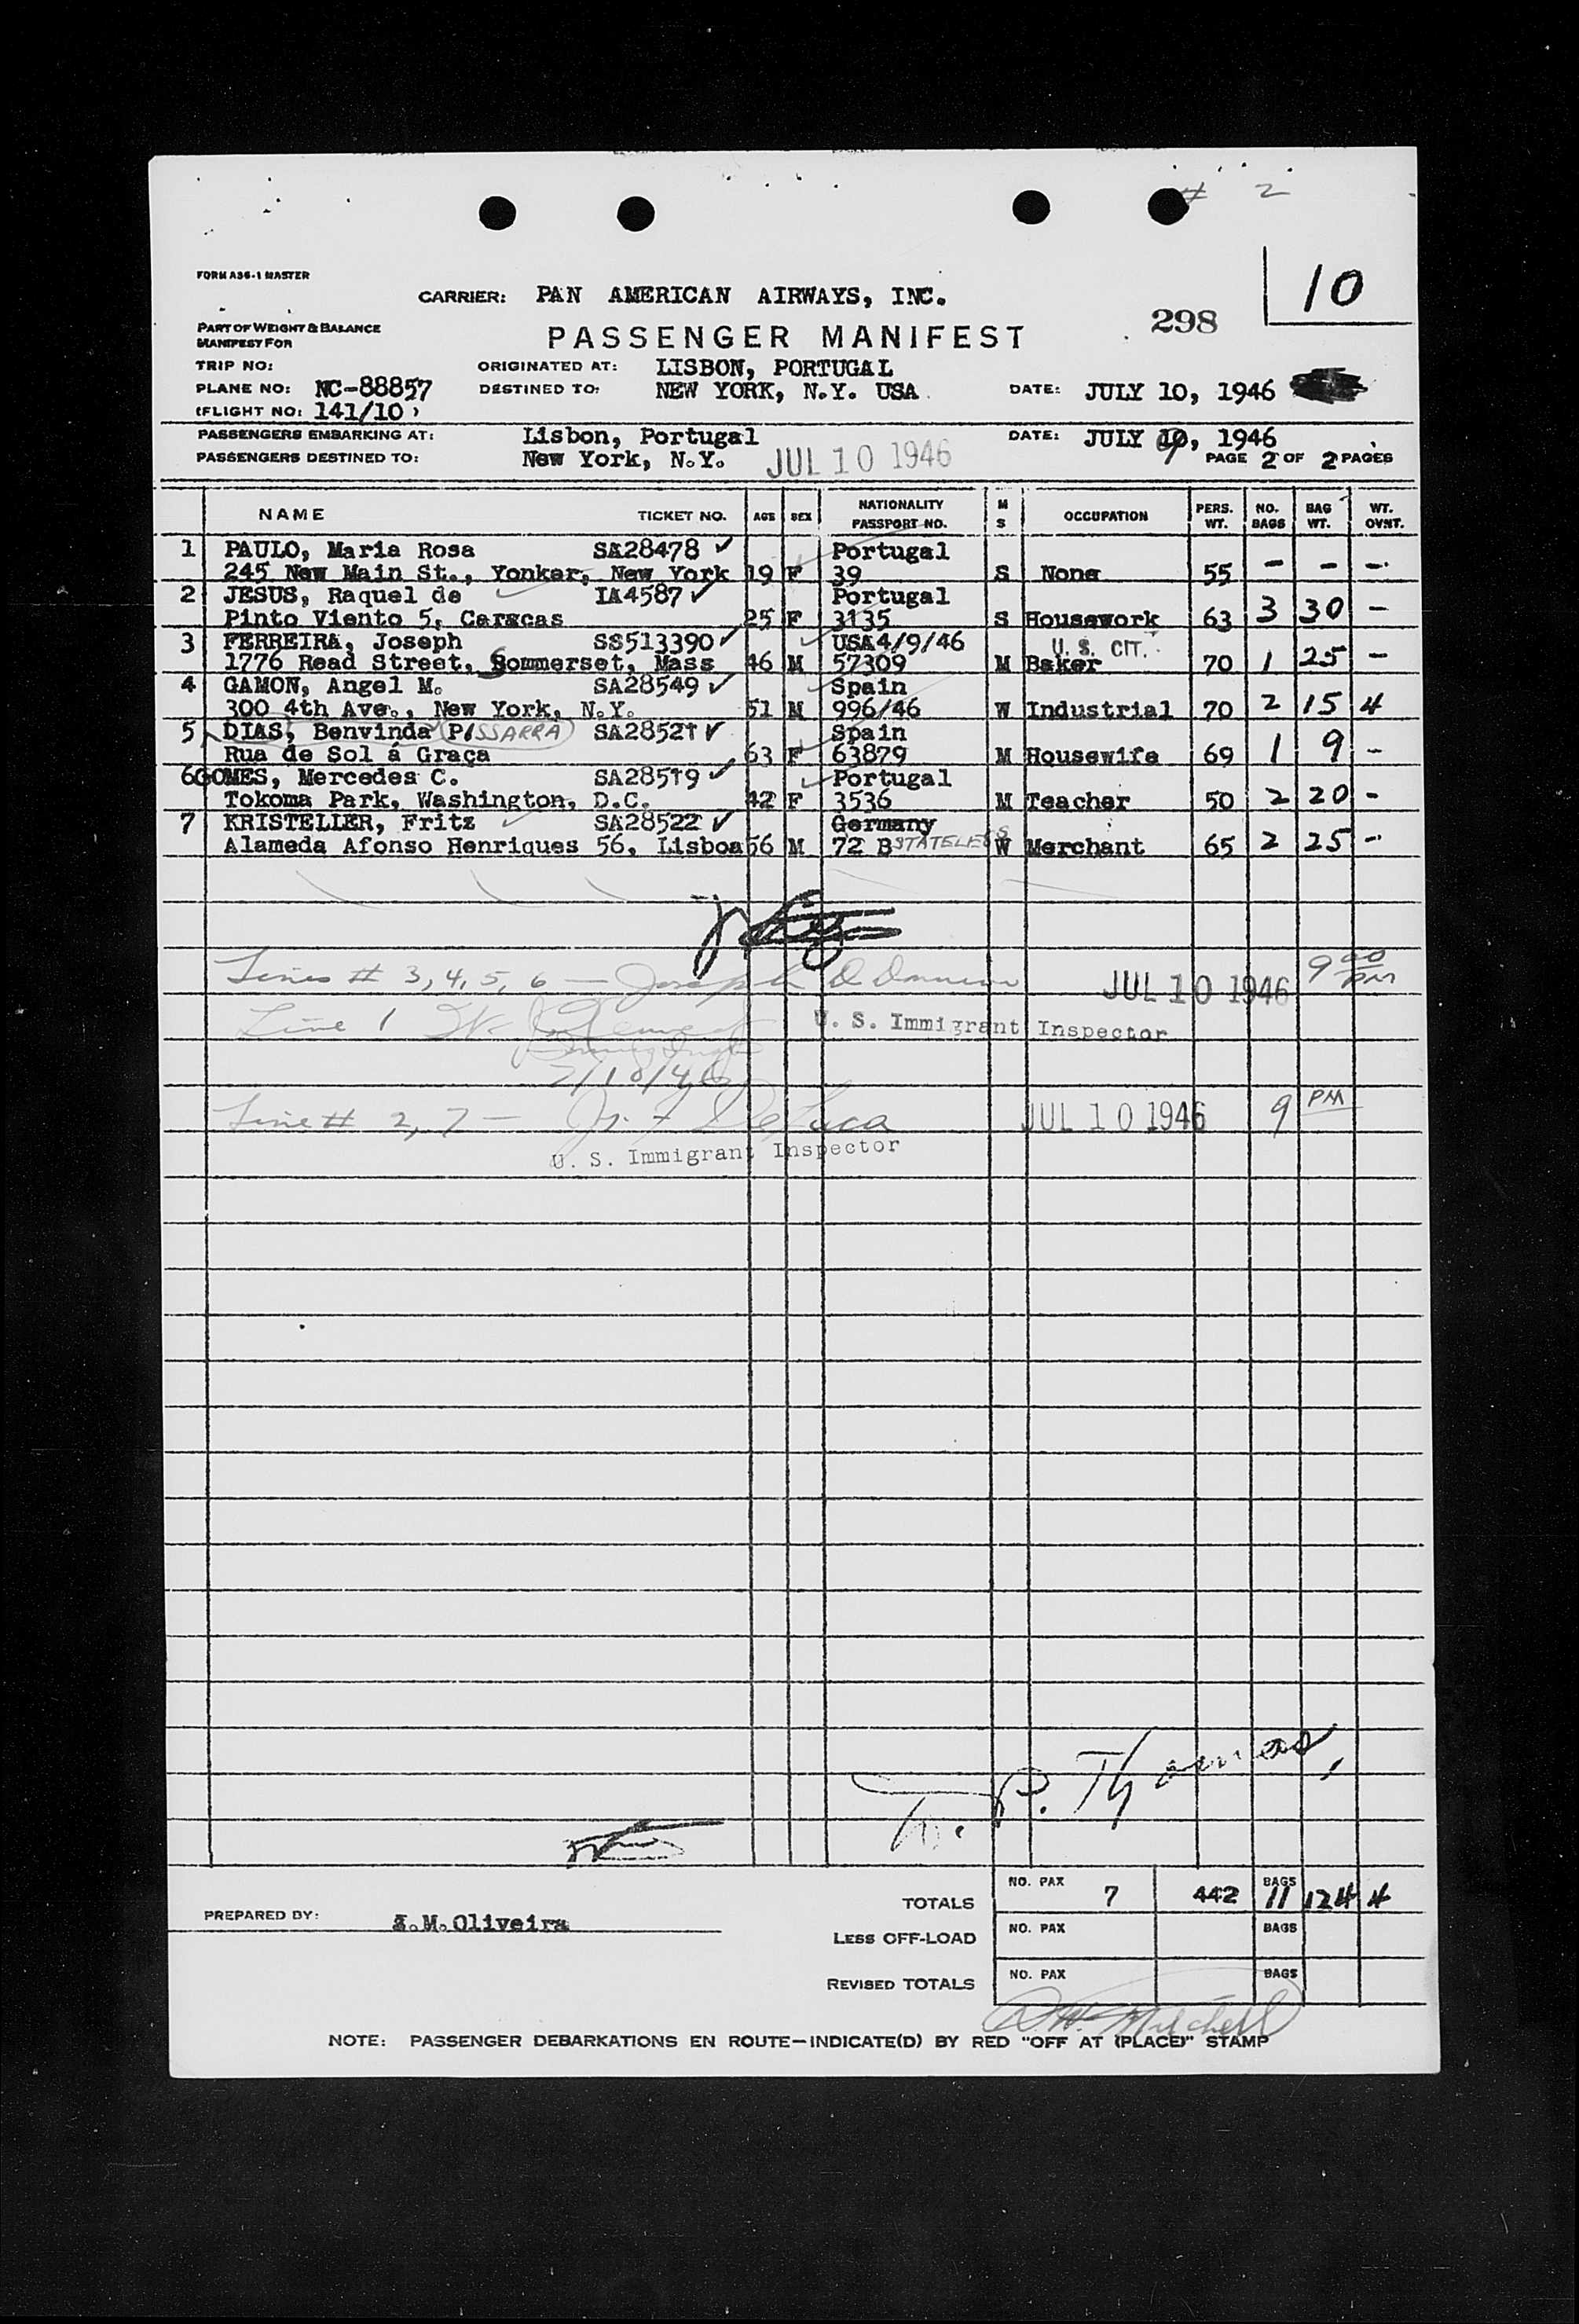 # 2
FORM A36-1 MASTER
10
CARRIER: PAN AMERICAN AIRWAYS, INC.
298
PART OF WEIGHT & BALANCE
MANIFEST FOR
PASSENGER MANIFEST
TRIP NO: ORIGINATED AT: LISBON, PORTUGAL
PLANE NO: NC-88857 DESTINED TO: NEW YORK, N.Y. USA DATE: JULY 10, 1946
(FLIGHT NO: 141/10)
PASSENGERS EMBARKING AT: Lisbon, Portugal DATE: JULY 9, 1946
PASSENGERS DESTINED TO: New York, N.Y. JUL 10 1946 PAGE 2 OF 2 PAGES
NAME TICKET NO. AGE SEX NATIONALITY PASSPORT NO. M S OCCUPATION PERS. WT. NO. BAGS BAG WT. WT. OVNT.
1 PAULO, Maria Rosa SA28478 ✓ Portugal
245 New Main St., Yonker, New York 19 F 39 S None 55 - - -
2 JESUS, Raquel de IA4587 ✓ Portugal
Pinto Viento 5, Caracas 25 F 3135 S Housework 63 3 30 -
3 FERREIRA, Joseph SS513390 ✓ USA 4/9/46 U. S. CIT.
1776 Read Street, Sommerset, Mass 46 M 57309 M Baker 70 1 25 -
4 GAMON, Angel M. SA28549 ✓ Spain
300 4th Ave., New York, N.Y. 51 M 996/46 W Industrial 70 2 15 4
5 DIAS, Benvinda PISSARRA SA28521 ✓ Spain
Rua de Sol á Graça 63 F 63879 M Housewife 69 1 9 -
6 GOMES, Mercedes C. SA28519 ✓ Portugal
Tokoma Park, Washington, D.C. 42 F 3536 M Teacher 50 2 20 -
7 KRISTELLER, Fritz SA28522 ✓ Germany
Alameda Afonso Henriques 56, Lisboa 56 M 72 B STATELESS W Merchant 65 2 25 -
Lines # 3, 4, 5, 6 — Joseph JUL 10 1946 9 00 PM
Line 1 U. S. Immigrant Inspector
7/10/46
Line # 2, 7 — DeLuca JUL 10 1946 9 PM
U. S. Immigrant Inspector
P. Thomas
TOTALS NO. PAX 7 442 BAGS 11 124 4
PREPARED BY: M. Oliveira
LESS OFF-LOAD NO. PAX BAGS
REVISED TOTALS NO. PAX BAGS
Mitchell
NOTE: PASSENGER DEBARKATIONS EN ROUTE—INDICATE(D) BY RED "OFF AT (PLACE)" STAMP